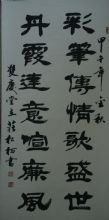 甲午年之秋
彩筆傳情歌盛世
丹霞達意宣廉風
雙慶堂主
書